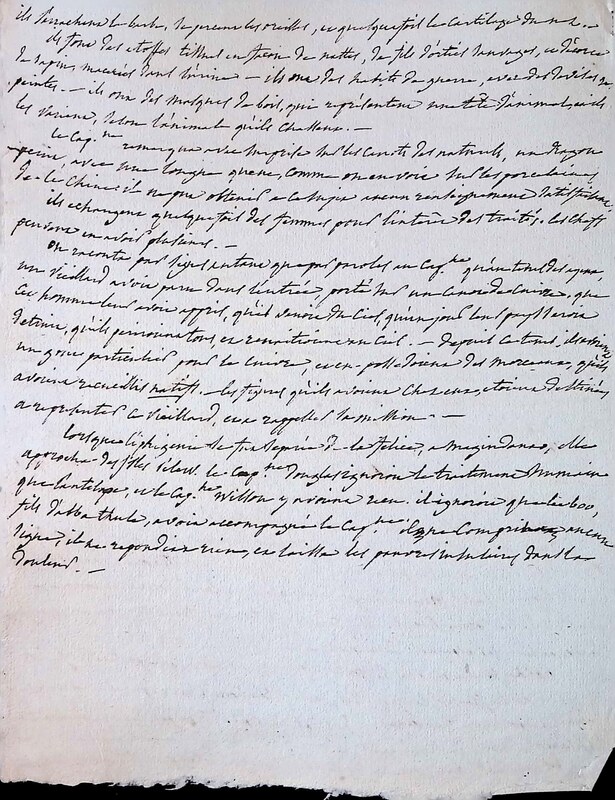 ils s'arrachent la barbe, se percent les oreilles, et quelquefois le cartilage du nez. —
ils font des etoffes tissues en façon de nattes, de fils d'orties sauvages, et d'écorce
de sapin, macérés dans l'urine — ils ont des habits de guerre, avec des
peintes. — ils ont des masques de bois, qui représentent une tête d'animal, et ils
les varient, selon l'animal qu'ils chassent. —
le Cap.ne remarqua avec surprise sur les canots des naturels, un dragon
peint, avec une longue queue, comme on en voit sur les porcelaines
de la Chine: il ne put obtenir a ce sujet aucun renseignement satisfaisant
ils echangent quelquefois des femmes pour l'interêt des traités. les chefs
peuvent en avoir plusieurs. —
on raconta par signes autant que par paroles au Cap.ne qu'un tems des ayeux,
un vieillard avoit paru dans l'entrée, porté sur un canot de cuivre, que
cet homme leur avoit appris, qu'il venoit du Ciel, qu'un jour leur pays seroit
detruit, qu'ils periroient tous, et renaitroient au Ciel. — depuis ce tems, ils
un gout particulier pour le cuivre, et en possedoient des morceaux, qu'ils
avoient recueillis natifs. — les figures qu'ils avoient chez eux, etoient destinées
a representer ce vieillard, et a rappeller sa mission. —
lorsque l'iphigenie se fut separée de la felice, a Magindanao, elle
approcha des isles Pelew. le Cap.ne Douglas ignoroit le traitement humain
que l'antelope, et le Cap.ne Wilson y avoient reçu. il ignoroit que Lee boo,
fils d'abba thule, avoit accompagné le Cap.ne il ne comprit aucun
signe, il ne repondit a rien, et laissa les pauvres insulaires dans la
douleur. —